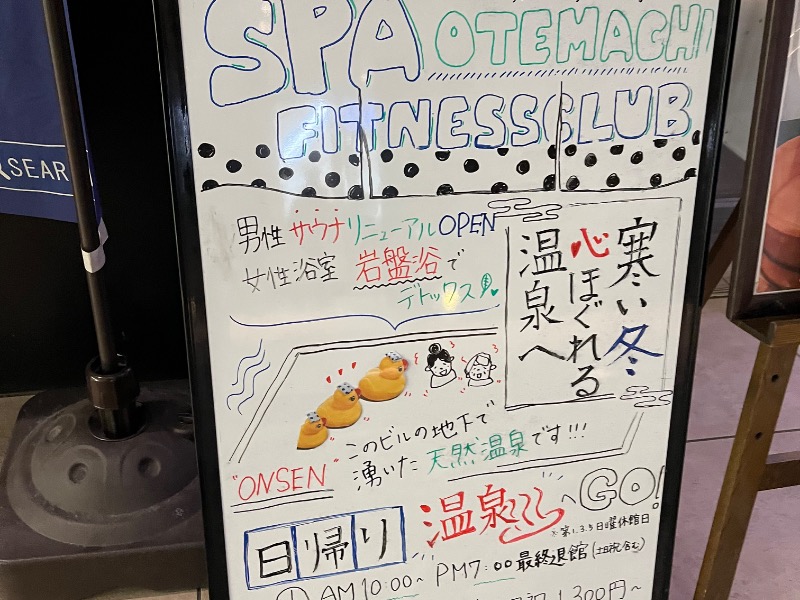 SPA OTEMACHI
FITNESSCLUB
SEAR
男性サウナリニューアルOPEN
女性浴室 岩盤浴で
デトックス
寒い冬
心ほぐれる
温泉へ
このビルの地下で
湧いた 天然温泉です!!!
"ONSEN"
日帰り 温泉へGO!
※第1.3.5日曜休館日
① AM10:00~ PM7:00最終退館(土日祝含む)
1,300円~